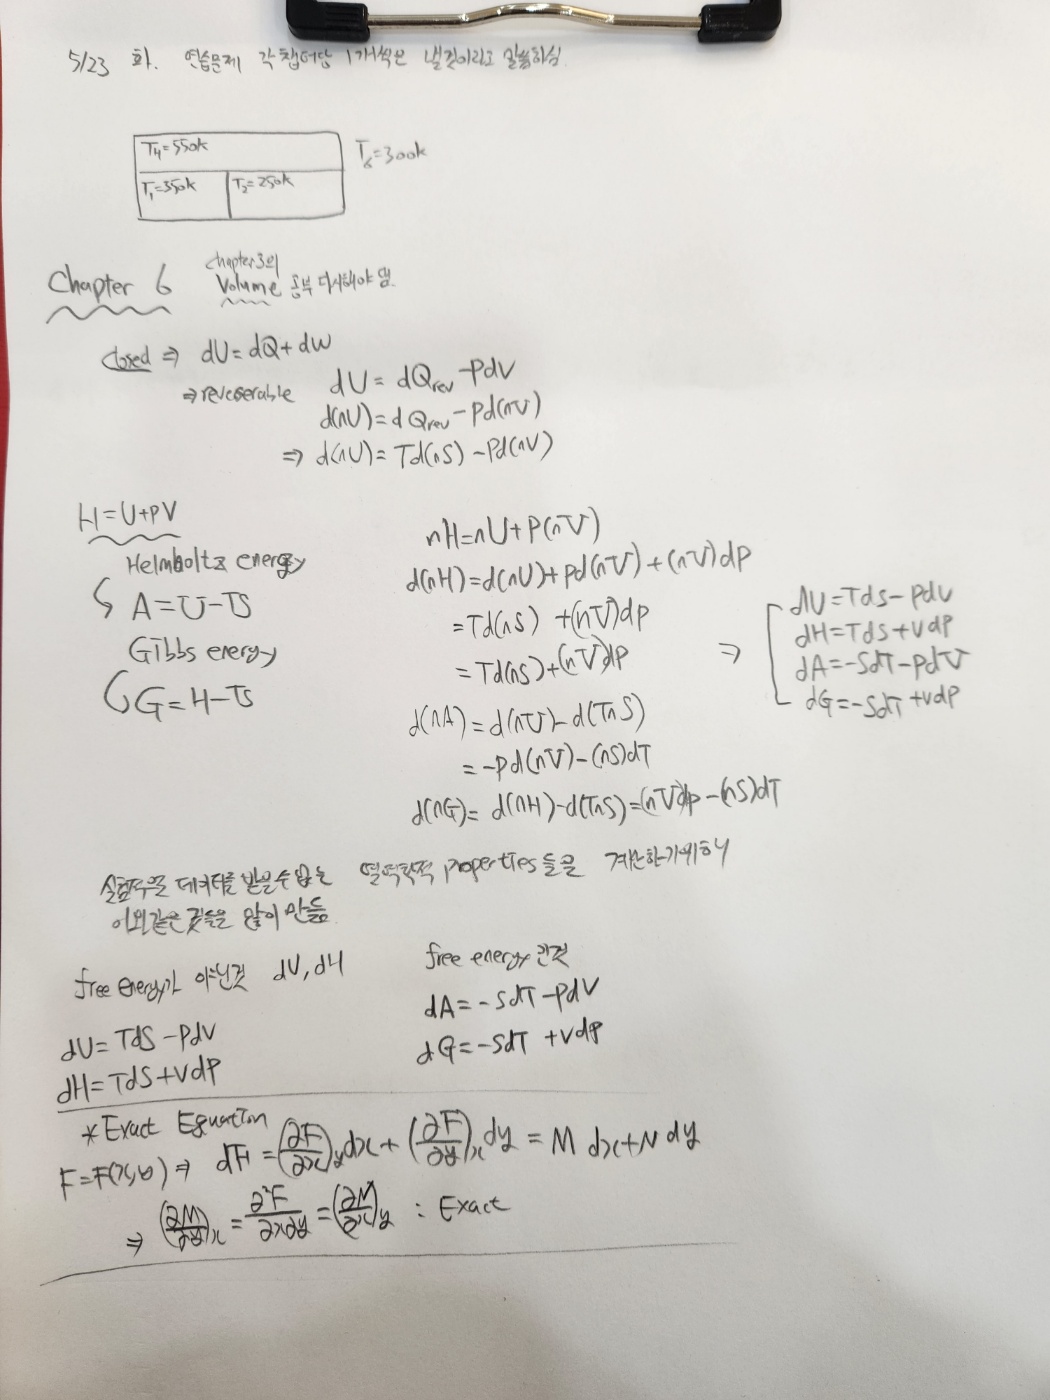 5/23 화. 연습문제 각 챕터당 1개씩은 낼것이라고 말씀하심.
T₄=550k
T₁=350k T₂=250k
T=300k
Chapter 6
chapter3의
Volume 공부 다시해야 댐.
closed ⇒ dU=dQ+dW
⇒ reverserable dU = dQrev -PdV
d(nU)=dQrev-Pd(nV)
⇒ d(nU)= Td(nS) -Pd(nV)
H=U+PV
Helmholtz energy
A=U-TS
Gibbs energy
G=H-TS
nH=nU+P(nV)
d(nH)=d(nU)+Pd(nV)+(nV)dp
=Td(nS) +(nV)dp
=Td(nS)+(nV)dp
d(nA)=d(nU)-d(TnS)
=-Pd(nV)-(nS)dT
d(nG)= d(nH)-d(TnS)=(nV)dp-(nS)dT
⇒ dU=Tds-pdv
dH=Tds+vdp
dA=-SdT-pdV
dG=-SdT+vdp
데이터를 받을수 없는 열역학적 properties들을 계산하기위해
이와같은 것들을 많이 만듦
free energy가 아닌것 dU, dH
dU= TdS -PdV
dH=TdS+VdP
free energy 인것
dA=-SdT-PdV
dG=-SdT +Vdp
*Exact Equation
F=F(x,y) ⇒ dF=(∂F/∂x)y dx+(∂F/∂y)x dy = M dx+N dy
⇒ (∂M/∂y)x=∂²F/∂x∂y=(∂M/∂x)y : Exact